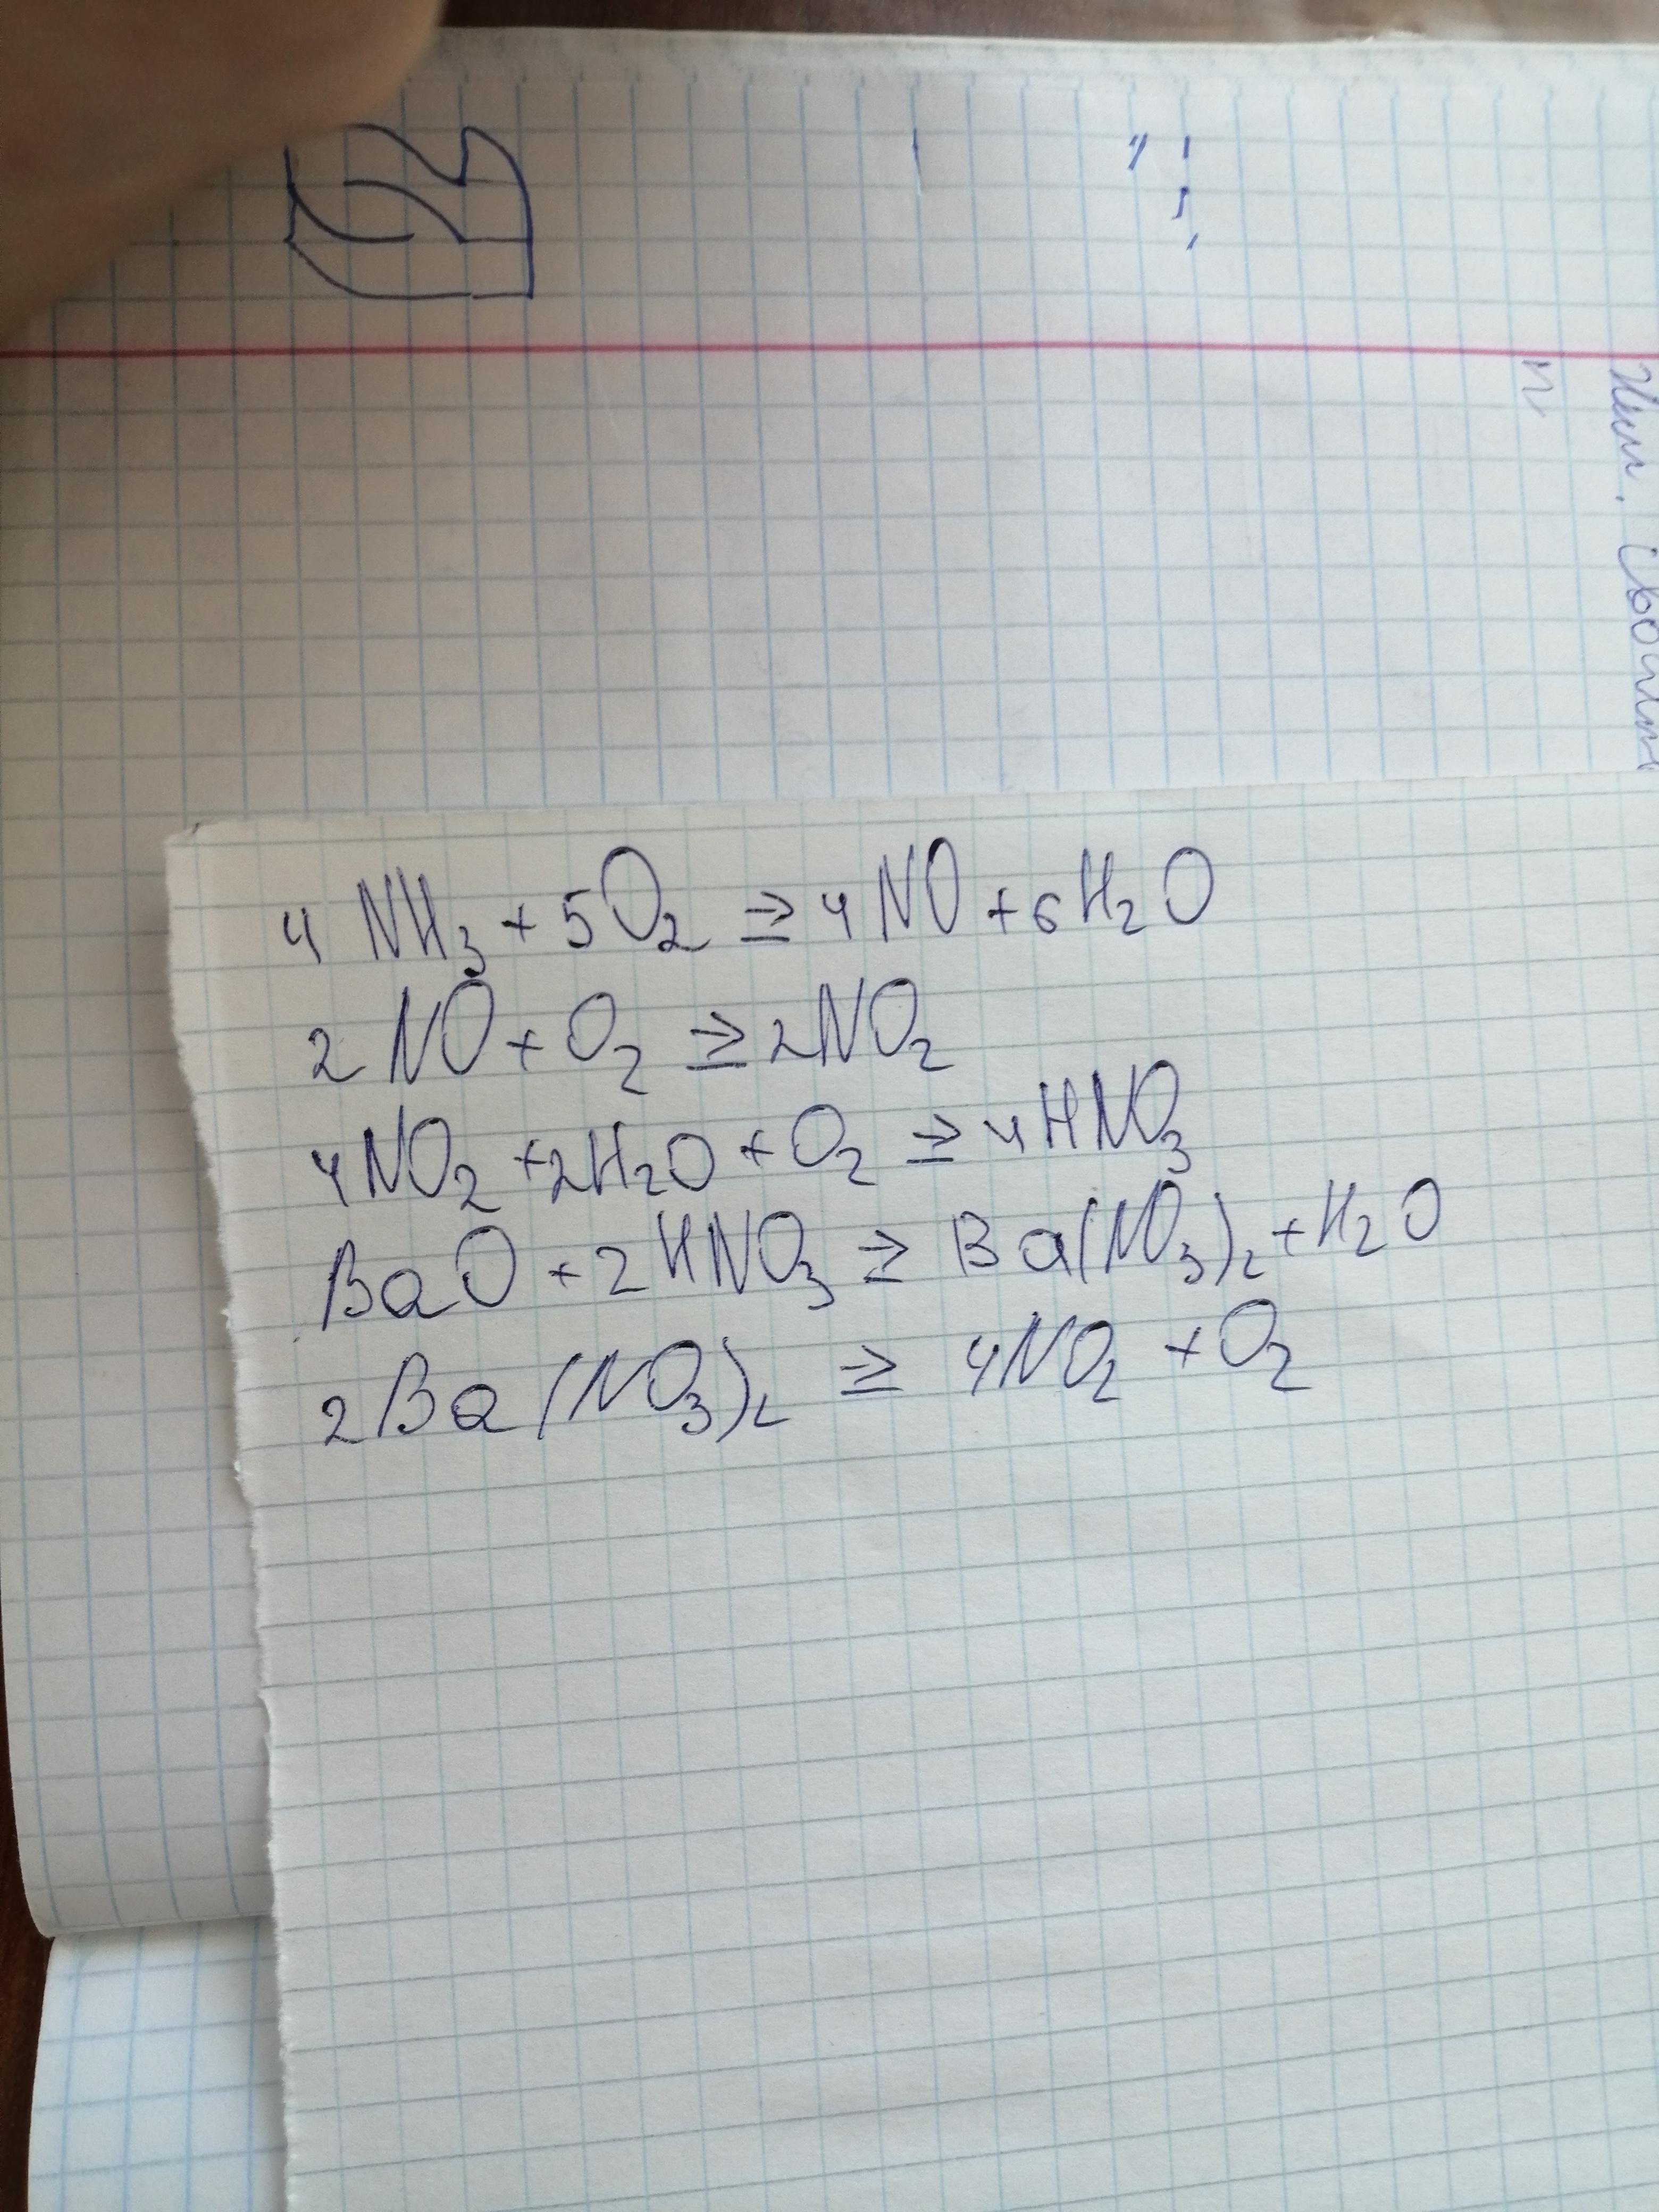 4NH₃ + 5O₂ ⇒ 4NO + 6H₂O
2NO + O₂ ⇒ 2NO₂
4NO₂ + 2H₂O + O₂ ⇒ 4HNO₃
BaO + 2HNO₃ ⇒ Ba(NO₃)₂ + H₂O
2Ba(NO₃)₂ ⇒ 4NO₂ + O₂